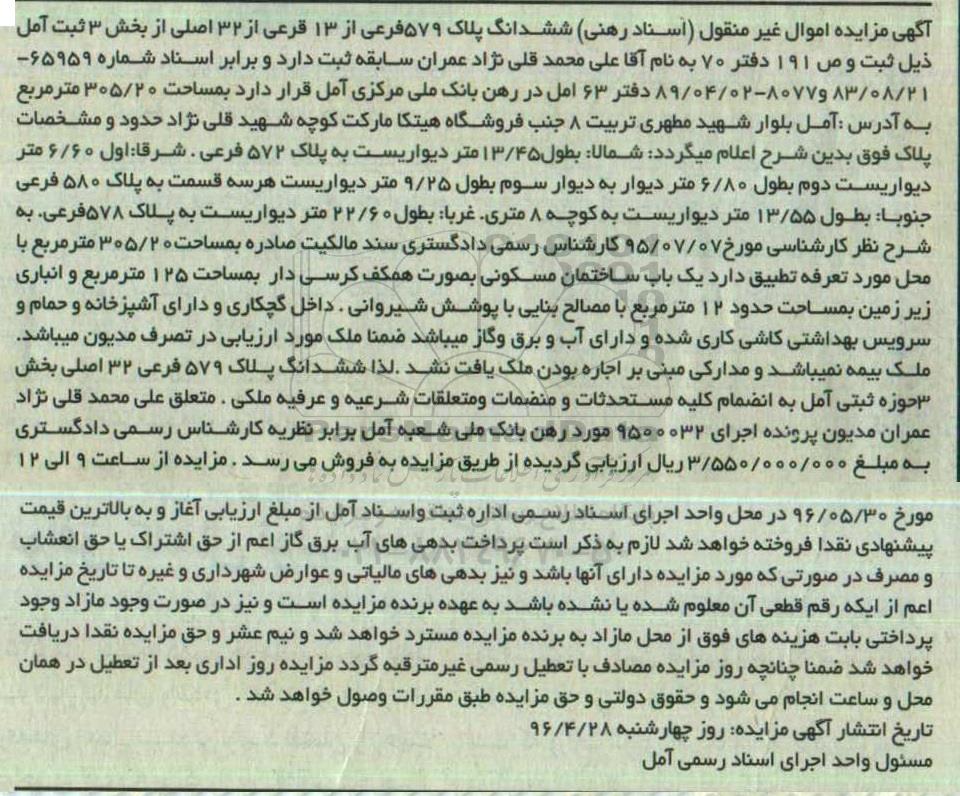 آگهی مزایده اموال غیر منقول (اسناد رهنی) ششدانگ پلاک ۵۷۹فرعی از ۱۳ قرعی از۳۲ اصلی از بخش ۳ ثبت آمل
ذیل ثبت و ص ۱۹۱ دفتر ۷۰ به نام آقا علی محمد قلی نژاد عمران سابقه ثبت دارد و برابر اسناد شماره ۶۵۹۵۹-
۸۳/۰۸/۲۱ و۸۰۷۷-۸۹/۰۴/۰۲ دفتر ۶۳ امل در رهن بانک ملی مرکزی آمل قرار دارد بمساحت ۳۰۵/۲۰ مترمربع
به آدرس :آمل بلوار شهید مطهری تربیت ۸ جنب فروشگاه هیتکا مارکت کوچه شهید قلی نژاد حدود و مشخصات
پلاک فوق بدین شرح اعلام میگردد: شمالا: بطول۱۳/۴۵متر دیواریست به پلاک ۵۷۲ فرعی . شرقا:اول ۶/۶۰ متر
دیواریست دوم بطول ۶/۸۰ متر دیوار به دیوار سوم بطول ۹/۲۵ متر دیواریست هرسه قسمت به پلاک ۵۸۰ فرعی
جنوبا: بطول ۱۳/۵۵ متر دیواریست به کوچه ۸ متری. غربا: بطول۲۲/۶۰ متر دیواریست به پلاک ۵۷۸فرعی. به
شرح نظر کارشناسی مورخ۹۵/۰۷/۰۷ کارشناس رسمی دادگستری سند مالکیت صادره بمساحت۳۰۵/۲۰ مترمربع با
محل مورد تعرفه تطبیق دارد یک باب ساختمان مسکونی بصورت همکف کرسی دار بمساحت ۱۲۵ مترمربع و انباری
زیر زمین بمساحت حدود ۱۲ مترمربع با مصالح بنایی با پوشش شیروانی . داخل گچکاری و دارای آشپزخانه و حمام و
سرویس بهداشتی کاشی کاری شده و دارای آب و برق وگاز میباشد ضمنا ملک مورد ارزیابی در تصرف مدیون میباشد.
ملک بیمه نمیباشد و مدارکی مبنی بر اجاره بودن ملک یافت نشد .لذا ششدانگ پلاک ۵۷۹ فرعی ۳۲ اصلی بخش
۳حوزه ثبتی آمل به انضمام کلیه مستحدثات و منضمات ومتعلقات شرعیه و عرفیه ملکی . متعلق علی محمد قلی نژاد
عمران مدیون پرونده اجرای ۹۵۰۰۰۳۲ مورد رهن بانک ملی شعبه آمل برابر نظریه کارشناس رسمی دادگستری
به مبلغ ۳/۵۵۰/۰۰۰/۰۰۰ ریال ارزیابی گردیده از طریق مزایده به فروش می رسد . مزایده از ساعت ۹ الی ۱۲
مورخ ۹۶/۰۵/۳۰ در محل واحد اجرای اسناد رسمی اداره ثبت واسناد آمل از مبلغ ارزیابی آغاز و به بالاترین قیمت
پیشنهادی نقدا فروخته خواهد شد لازم به ذکر است پرداخت بدهی های آب برق گاز اعم از حق اشتراک یا حق انعشاب
و مصرف در صورتی که مورد مزایده دارای آنها باشد و نیز بدهی های مالیاتی و عوارض شهرداری و غیره تا تاریخ مزایده
اعم از ایکه رقم قطعی آن معلوم شده یا نشده باشد به عهده برنده مزایده است و نیز در صورت وجود مازاد وجود
پرداختی بابت هزینه های فوق از محل مازاد به برنده مزایده مسترد خواهد شد و نیم عشر و حق مزایده نقدا دریافت
خواهد شد ضمنا چنانچه روز مزایده مصادف با تعطیل رسمی غیرمترقبه گردد مزایده روز اداری بعد از تعطیل در همان
محل و ساعت انجام می شود و حقوق دولتی و حق مزایده طبق مقررات وصول خواهد شد .
تاریخ انتشار آگهی مزایده: روز چهارشنبه ۹۶/۴/۲۸
مسئول واحد اجرای اسناد رسمی آمل